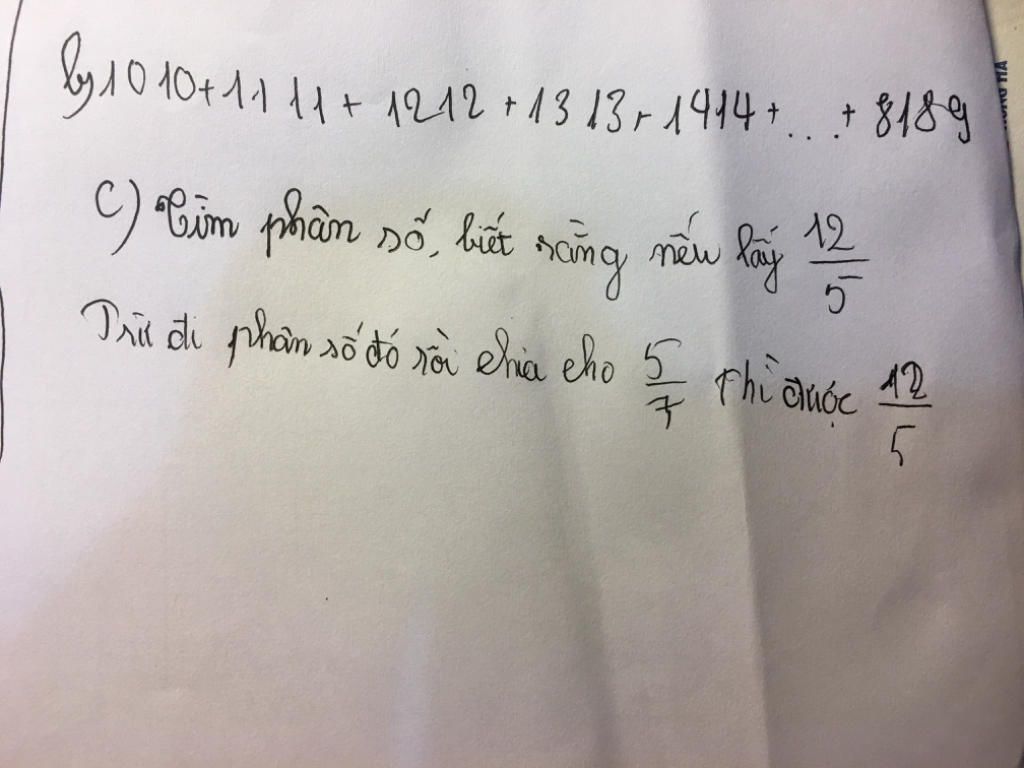 b) 1010 + 11 11 + 1212 + 13 13 + 1414 + ... + 8189
C) Tìm phân số, biết rằng nếu lấy 12/5
Trừ đi phân số đó rồi chia cho 5/7 thì được 12/5